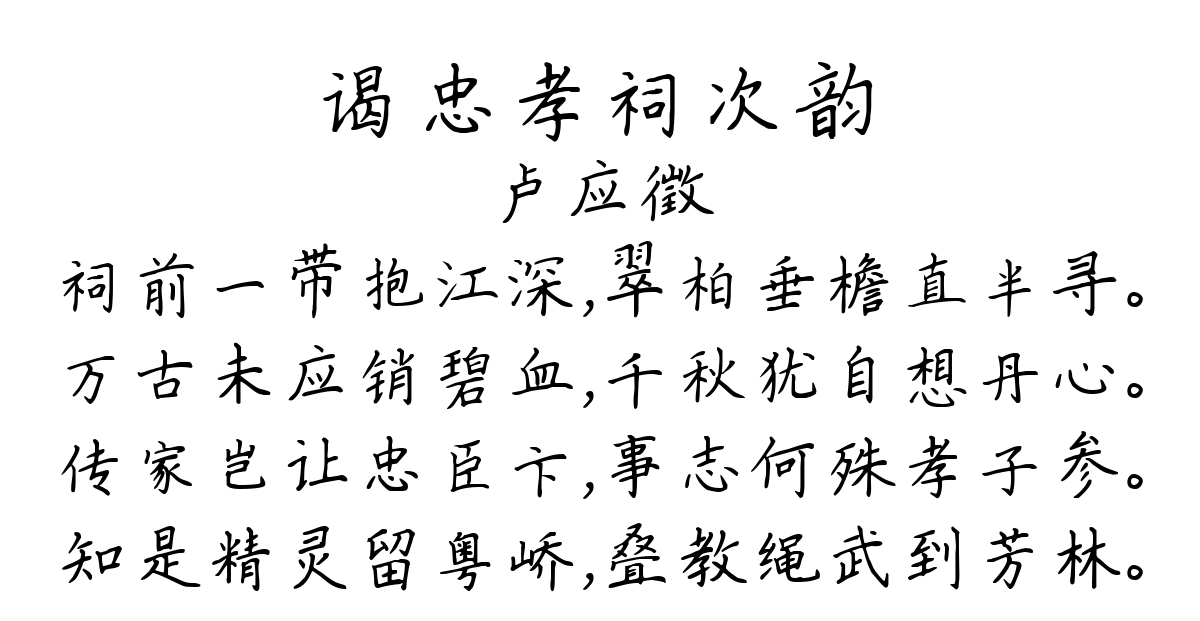 谒忠孝祠次韵
卢应徵
祠前一带抱江深,翠柏垂檐直半寻。
万古未应销碧血,千秋犹自想丹心。
传家岂让忠臣卞,事志何殊孝子参。
知是精灵留粤峤,叠教绳武到芳林。